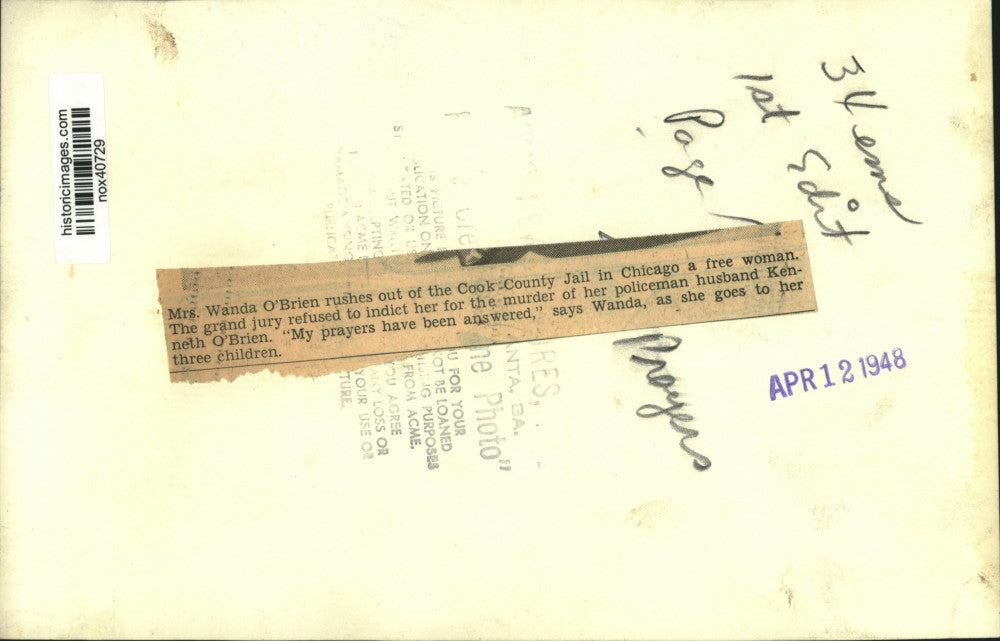 historicimages.com
nox40729
34 ems
1st Edit
Page 1
Mrs. Wanda O'Brien rushes out of the Cook County Jail in Chicago a free woman.
The grand jury refused to indict her for the murder of her policeman husband Ken-
neth O'Brien. "My prayers have been answered," says Wanda, as she goes to her
three children.
Prayers
APR 12 1948
URES,
ANTA, GA.
Photo"
U FOR YOUR
OT BE LOANED
PURPOSES
FROM ACME.
YOU AGREE
ANY LOSS OR
YOUR USE OR
TURE.